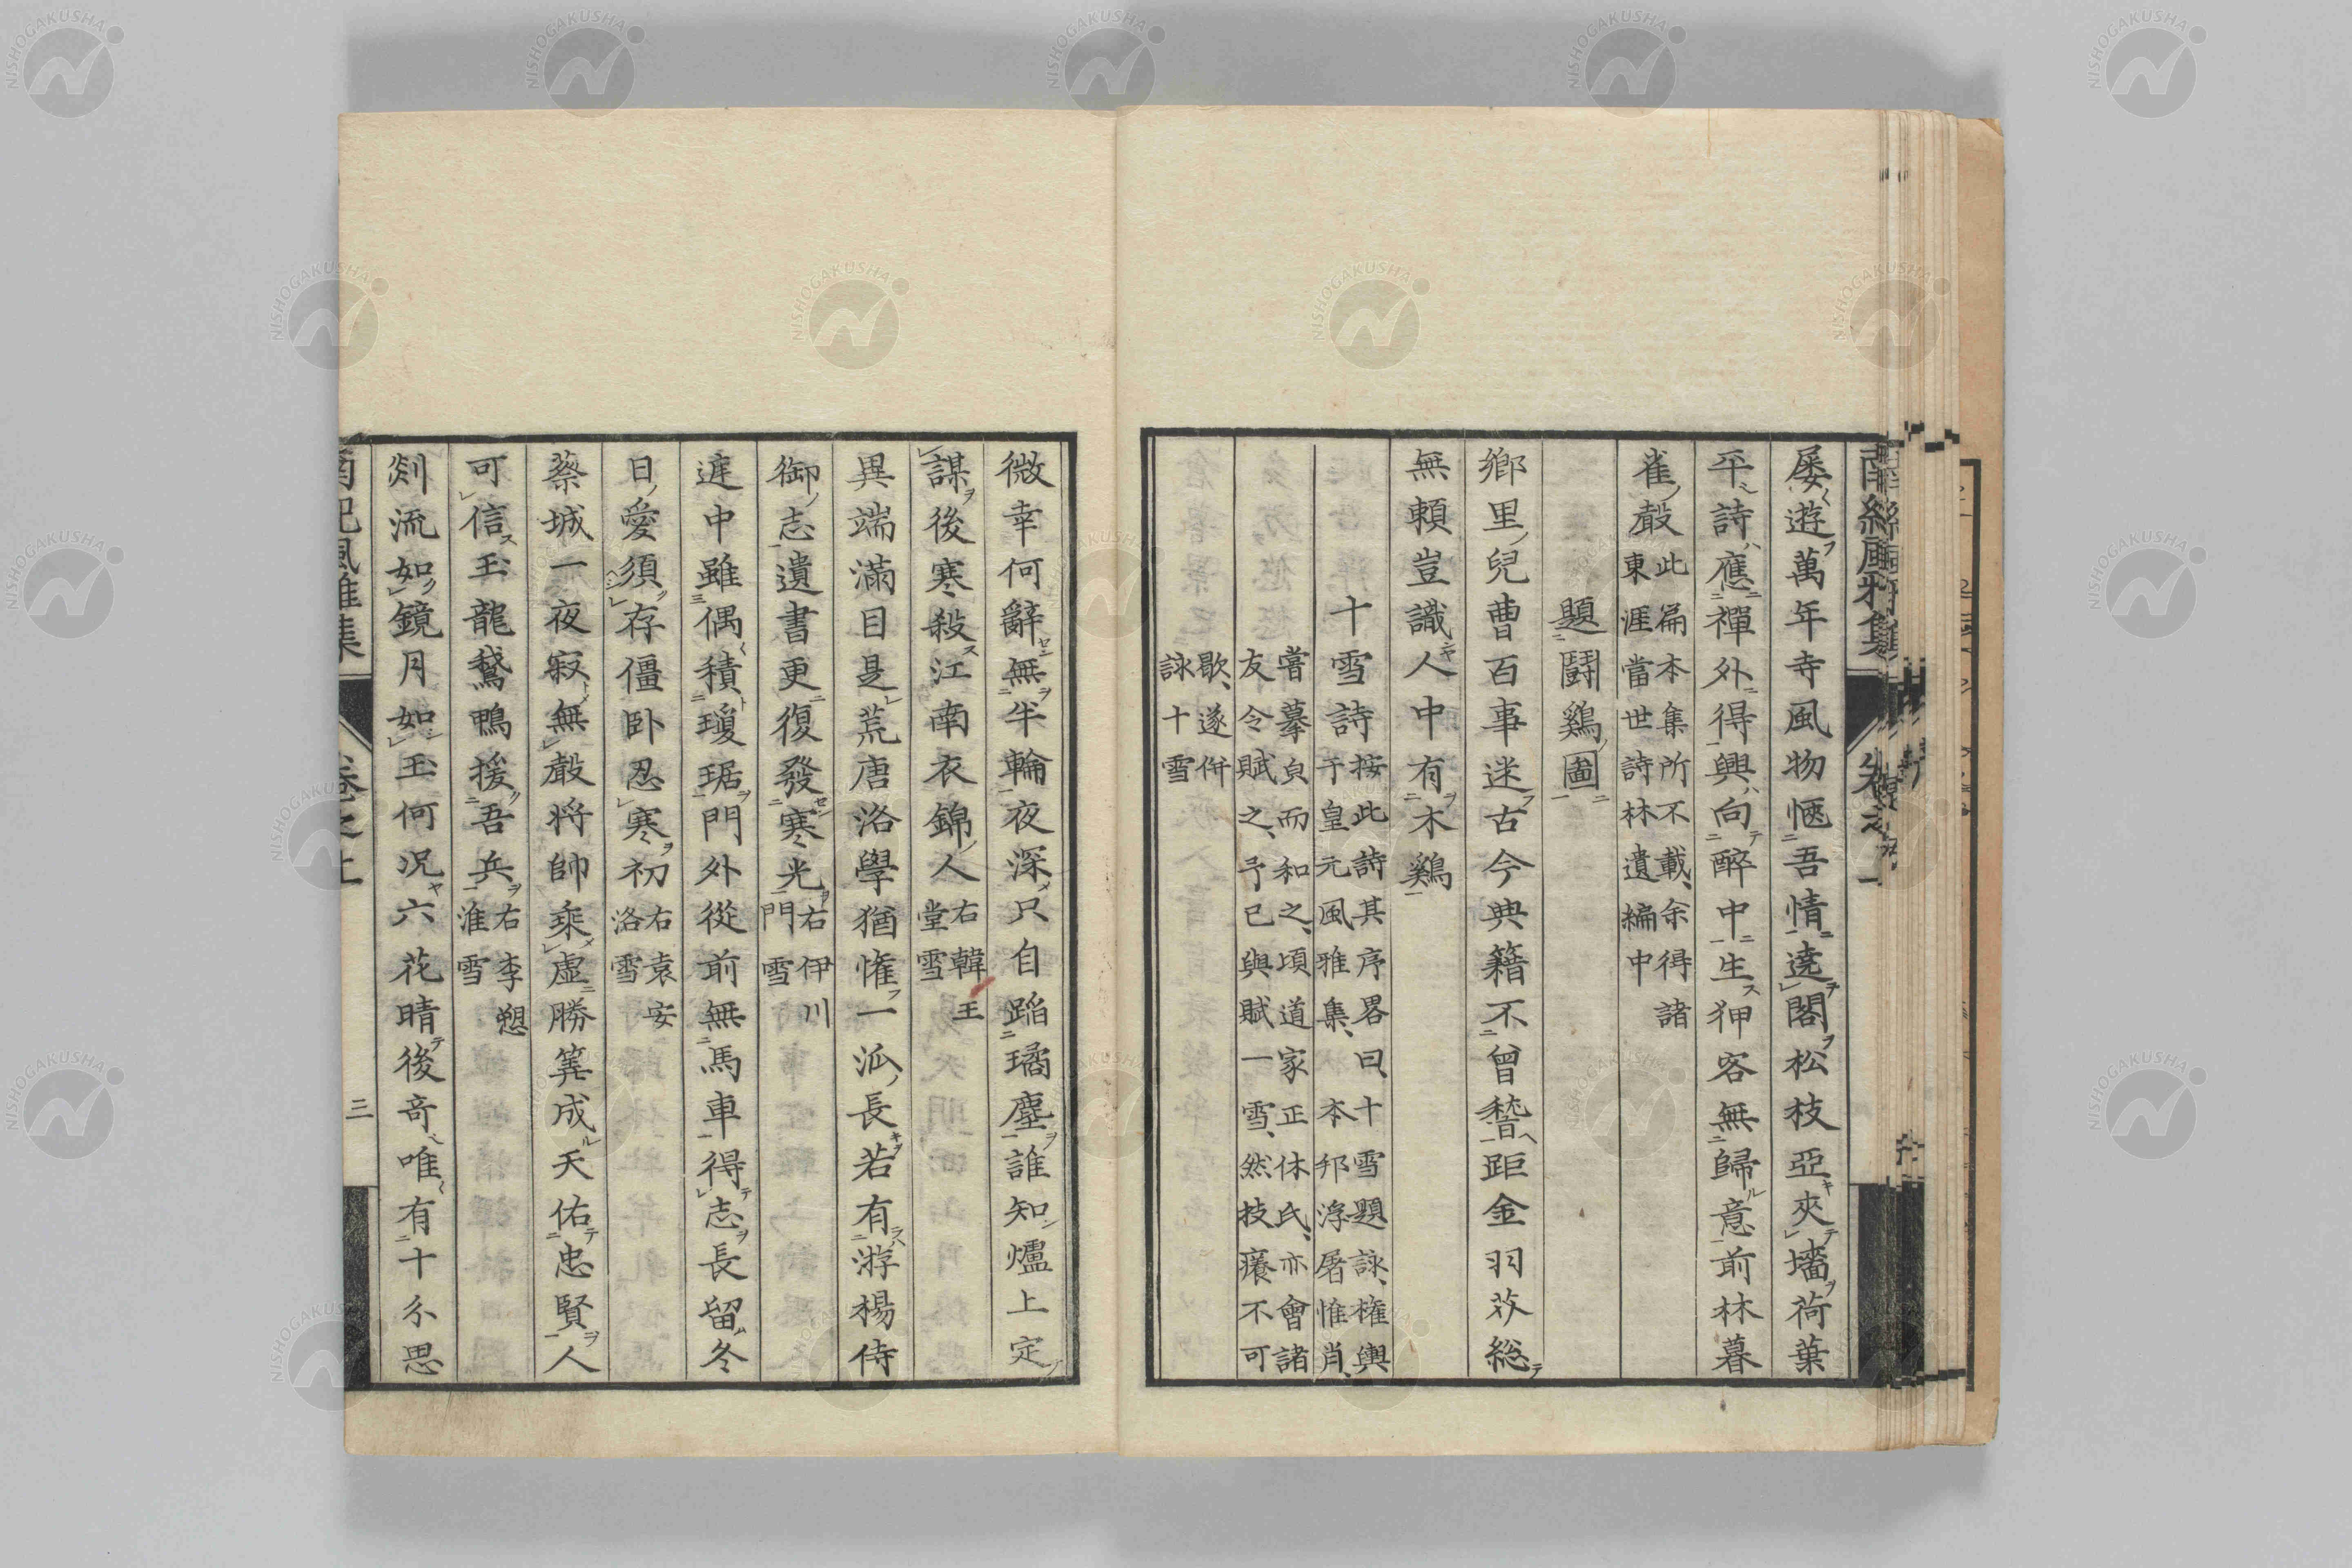 屡遊萬年寺風物愜吾情遶閣松枝亞夾墻荷葉
平詩應禪外得興向醉中生狎客無歸意前林暮
雀聲此扁本集所不載、余得諸
東涯當世詩林遺編中
題鬪鷄圖
鄉里兒曹百事迷古今典籍不曾稽距金羽芥総
無賴豈識人中有木鷄
十雪詩按此詩其序畧曰、十雪題詠、權輿
于皇元風雅集、本邦浮屠惟肖、
嘗摹㒵而和之、頃道家正休氏、亦會諸
友令賦之、予已與賦一雪、然技癢不可
歇、遂併
詠十雪
微幸何辭無半輪夜深只自蹈璚塵誰知爐上定
謀後寒殺江南衣錦人右韓王
堂雪
異端滿目是荒唐洛學猶惟一泒長若有游楊侍
御志遺書更復發寒光右伊川
門雪
遅中雖偶積瓊琚門外從前無馬車得志長留冬
日愛須存僵卧忍寒初右袁安
洛雪
蔡城一夜寂無聲将帥乘虛勝筭成天佑忠賢人
可信玉龍鵞鴨援吾兵右李愬
淮雪
剡流如鏡月如玉何況六花晴後奇唯有十分思
南紀風雅集
卷之上
三